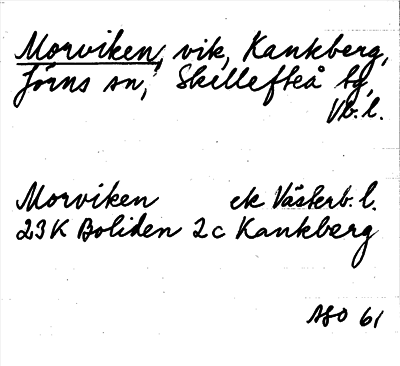 Morviken, vik, Kankberg,
Jörns sn, Skellefteå tg,
Vb.l.
Morviken ek Västerb.l.
23K Boliden 2c Kankberg
61